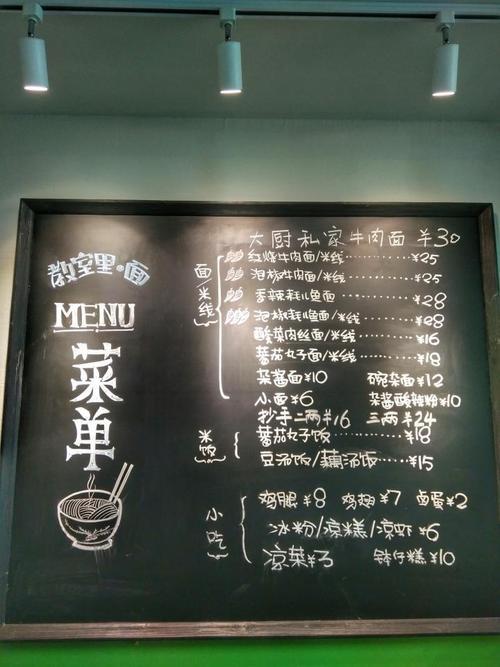 教室里·面
MENU
菜单
大厨私家牛肉面 ¥30
面/米线
红烧牛肉面/米线 ¥25
泡椒牛肉面/米线 ¥25
香辣耗儿鱼面 ¥28
泡椒耗儿鱼面/米线 ¥28
酸菜肉丝面/米线 ¥16
蕃茄丸子面/米线 ¥18
杂酱面¥10 碗杂面¥12
小面¥6 杂酱酸辣粉¥10
抄手二两¥16 三两¥24
米饭
蕃茄丸子饭 ¥18
豆汤饭/藕汤饭 ¥15
小吃
鸡腿¥8 鸡翅¥7 卤蛋¥2
冰粉/凉糕/凉虾¥6
凉菜¥3 钵仔糕¥10